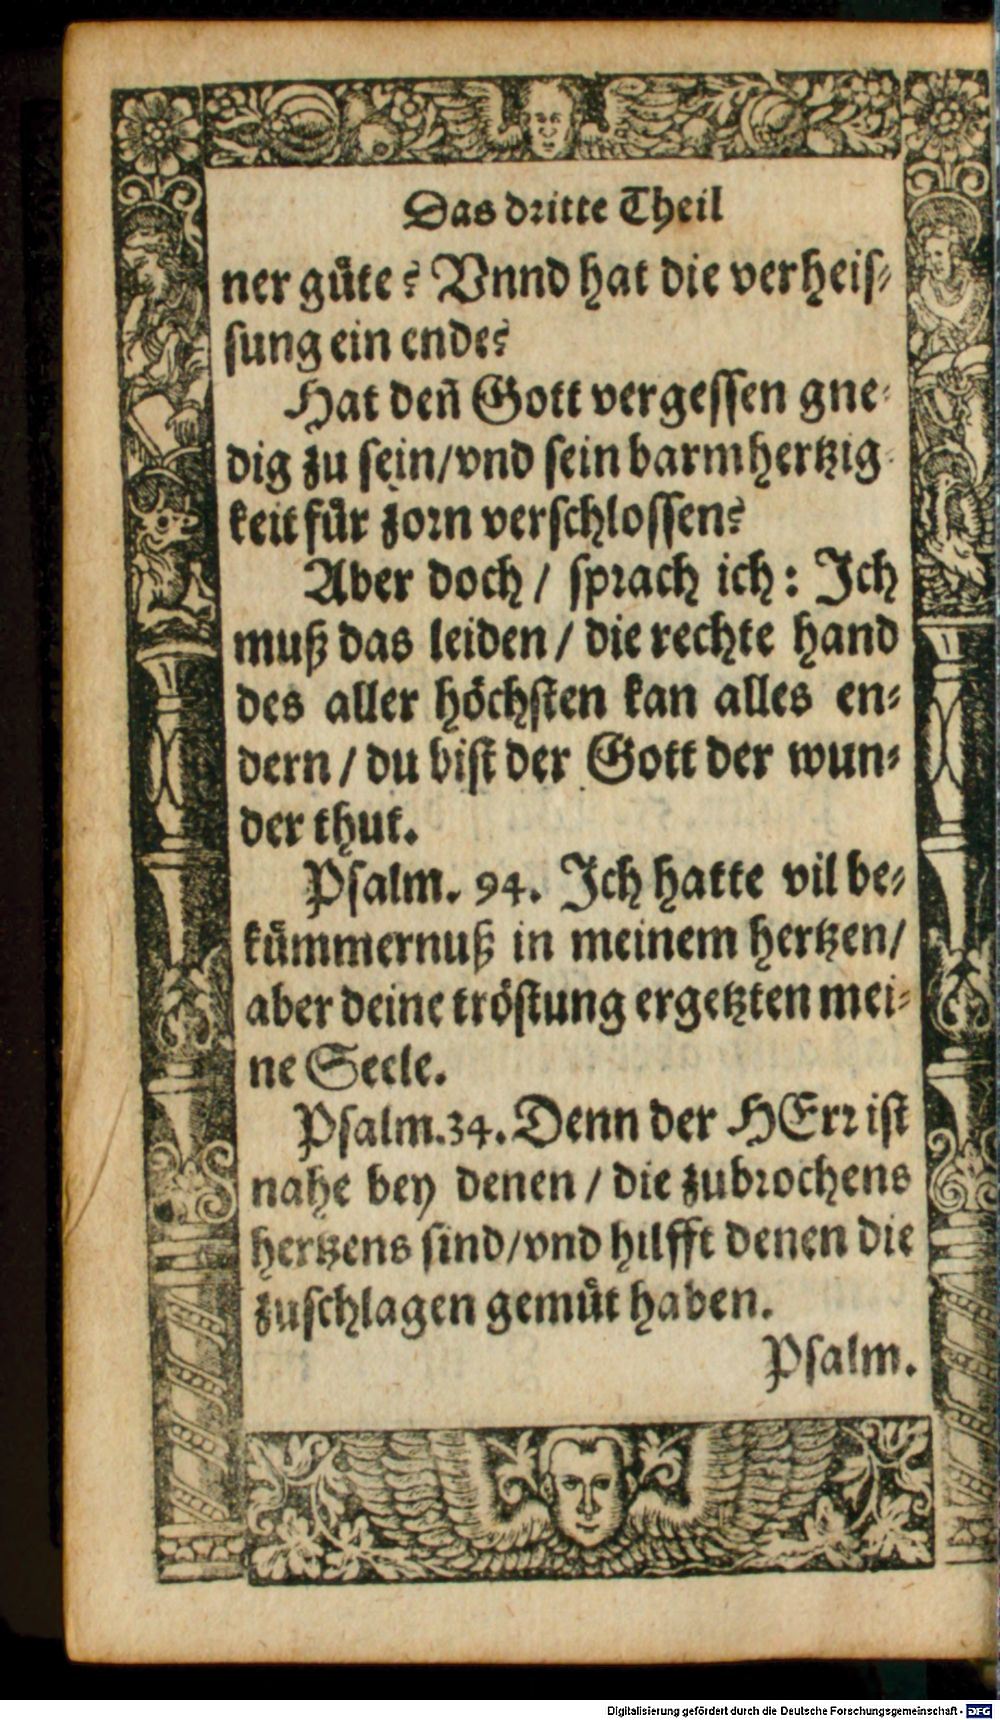 Das dritte Theil
ner güte? Vnnd hat die verheiſ-
ſung ein ende?
Hat deñ Gott vergeſſen gne-
dig zu ſein/vnd ſein barmhertzig-
keit für zorn verſchloſſen?
Aber doch / ſprach ich: Ich
muß das leiden / die rechte hand
des aller höchſten kan alles en-
dern / du biſt der Gott der wun-
der thut.
Pſalm. 94. Ich hatte vil be-
kümmernuß in meinem hertzen/
aber deine tröſtung ergetzten mei-
ne Seele.
Pſalm.34. Denn der HErr iſt
nahe bey denen / die zubrochens
hertzens ſind/vnd hilfft denen die
zuſchlagen gemüt haben.
Pſalm.
Digitalisierung gefördert durch die Deutsche Forschungsgemeinschaft - DFG